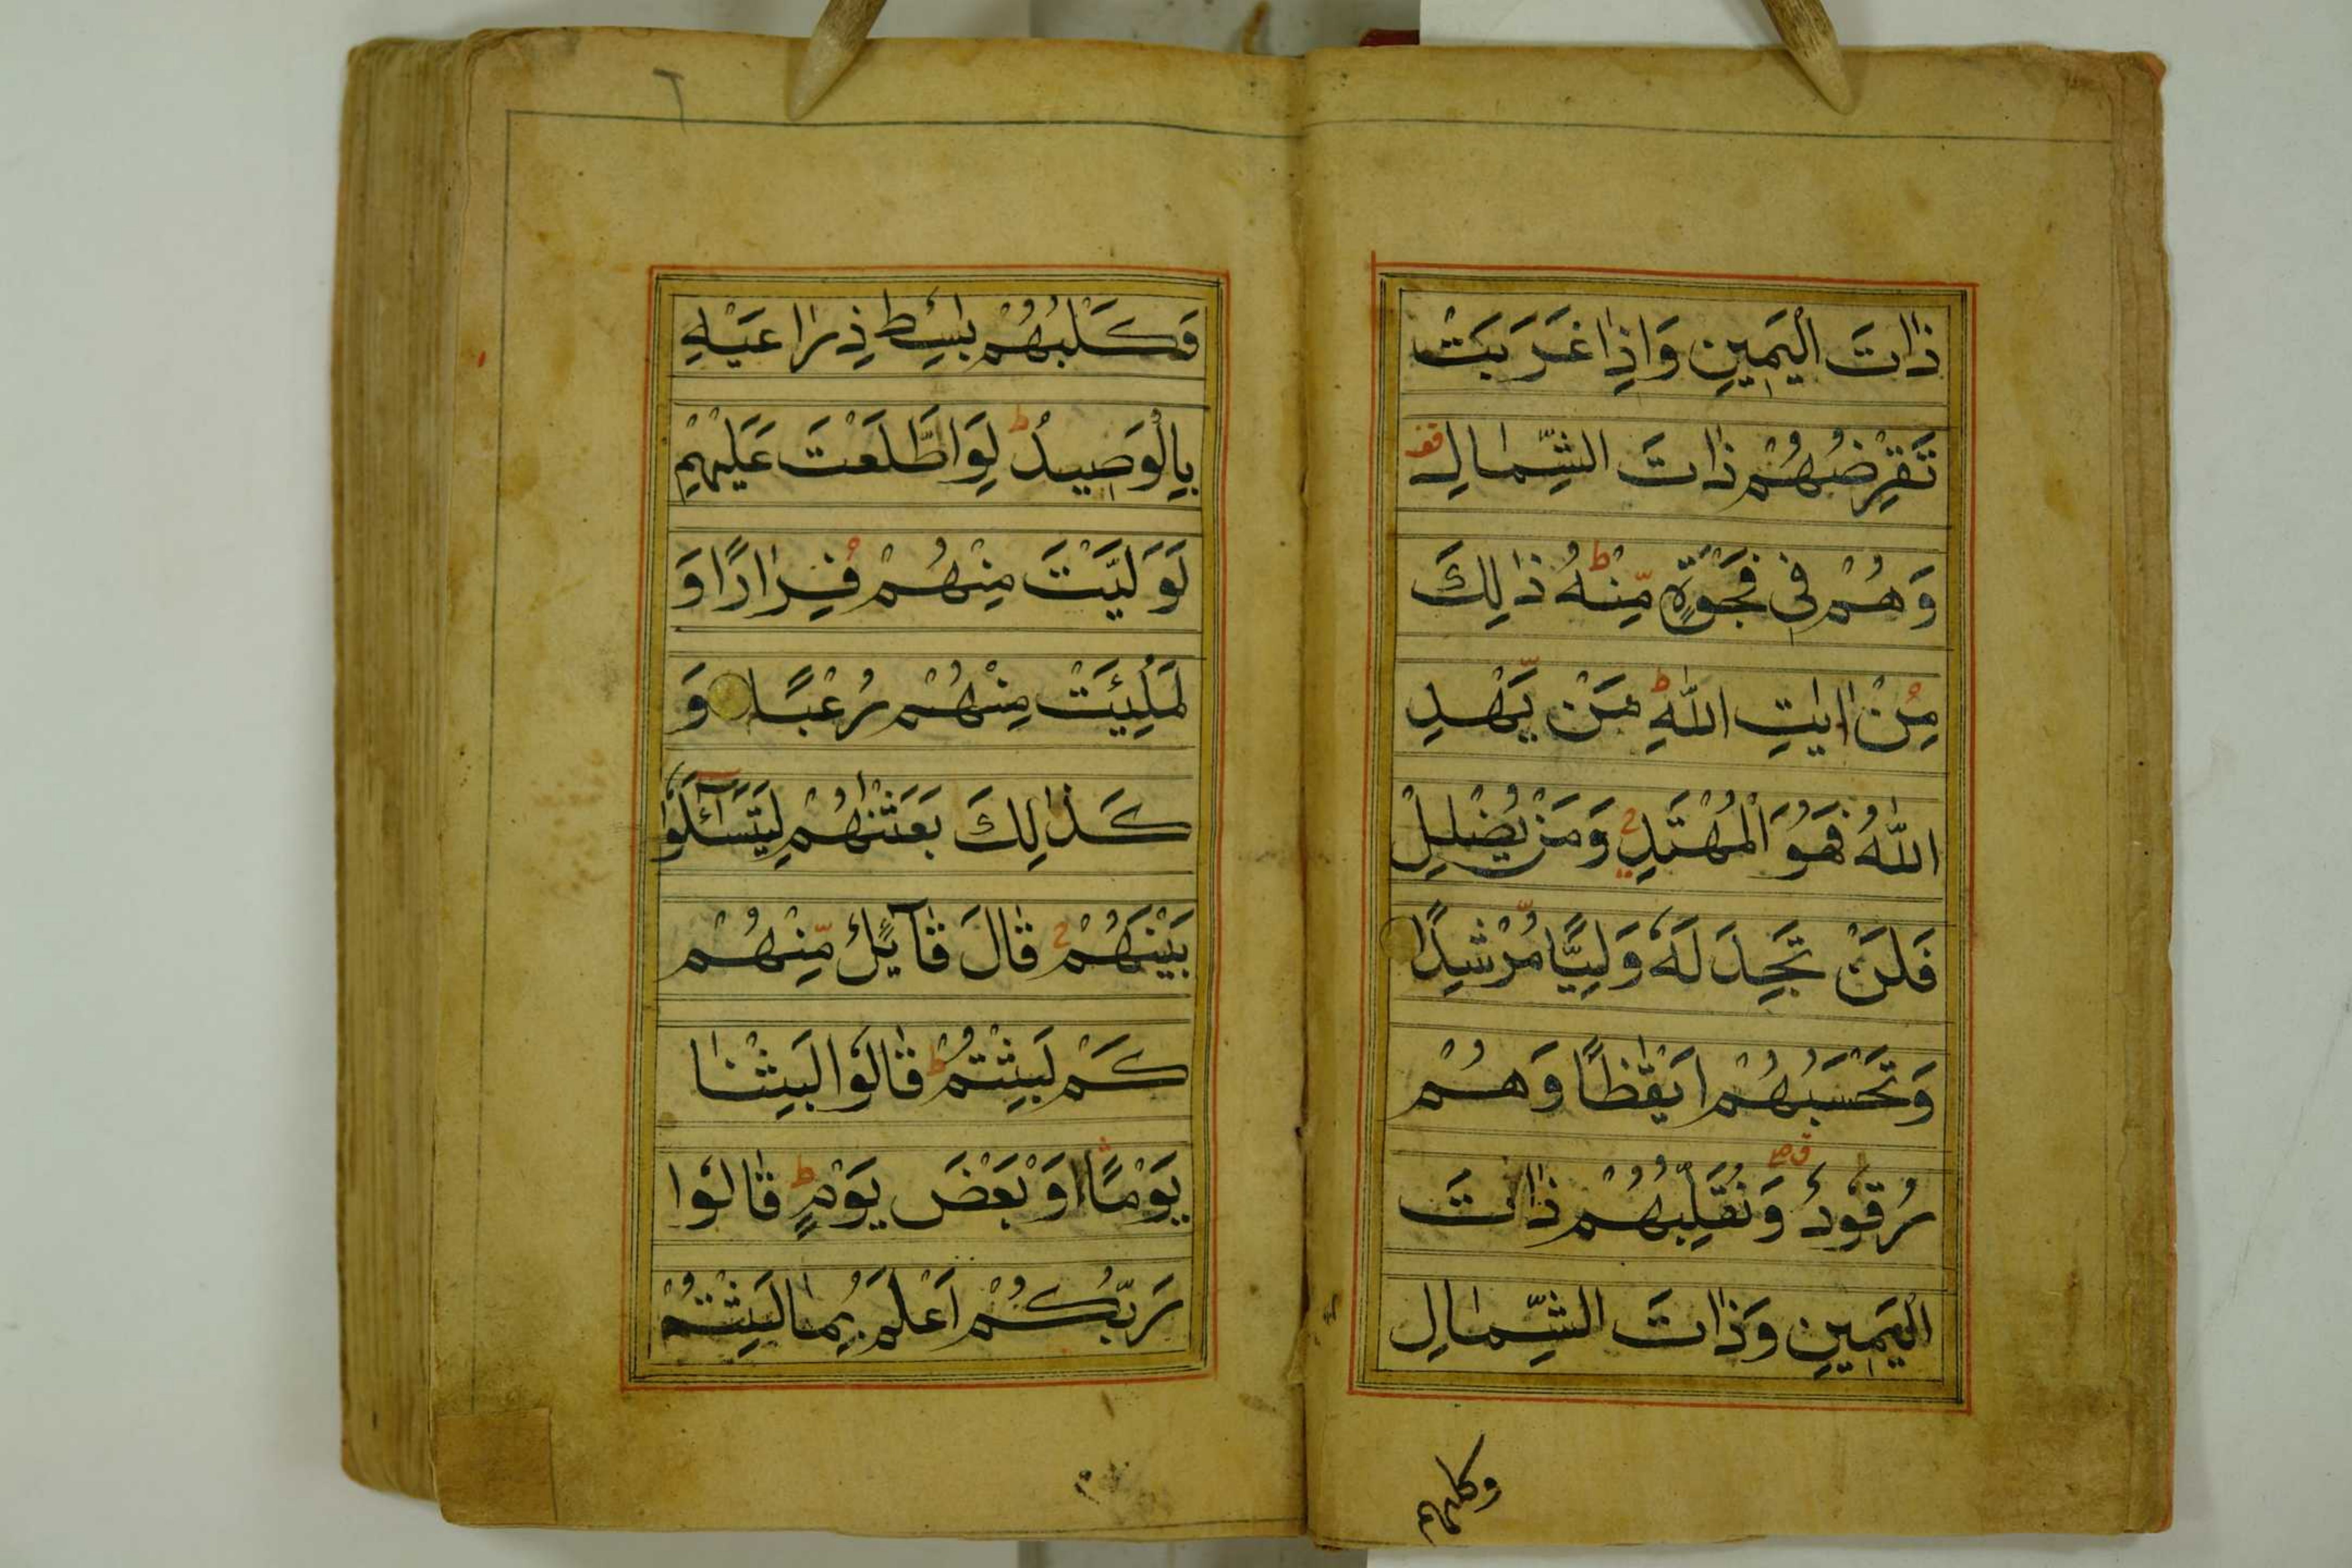 ذَاتَ الْيَمِينِ وَاِذَا غَرَبَتْ
تَقْرِضُهُمْ ذَاتَ الشِّمَالِ قف
وَهُمْ فِي فَجْوَةٍ مِّنْهُ ط ذٰلِكَ
مِنْ اٰيٰتِ اللّٰهِ ط مَنْ يَّهْدِ
اللّٰهُ فَهُوَ الْمُهْتَدِ ج وَمَنْ يُضْلِلْ
فَلَنْ تَجِدَ لَهٗ وَلِيًّا مُّرْشِدًا
وَتَحْسَبُهُمْ اَيْقَاظًا وَهُمْ
رُقُوْدٌ وَنُقَلِّبُهُمْ ذَاتَ
الْيَمِينِ وَذَاتَ الشِّمَالِ
وكلبهم
وَكَلْبُهُمْ بَاسِطٌ ذِرَاعَيْهِ
بِالْوَصِيدِ ط لَوِ اطَّلَعْتَ عَلَيْهِمْ
لَوَلَّيْتَ مِنْهُمْ فِرَارًا وَ
لَمُلِئْتَ مِنْهُمْ رُعْبًا وَ
كَذٰلِكَ بَعَثْنٰهُمْ لِيَتَسَآئَلُوْا
بَيْنَهُمْ ج قَالَ قَآئِلٌ مِّنْهُمْ
كَمْ لَبِثْتُمْ ط قَالُوْا لَبِثْنَا
يَوْمًا اَوْ بَعْضَ يَوْمٍ ط قَالُوْا
رَبُّكُمْ اَعْلَمُ بِمَا لَبِثْتُمْ